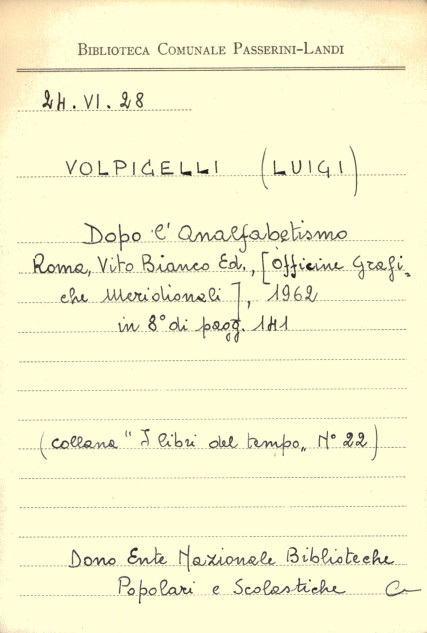 BIBLIOTECA COMUNALE PASSERINI-LANDI
2H.VI.28
VOLPIGELLI (LUIGI)
Dopo l'Analfabetismo
Roma, Vito Bianco Ed., [Officine Grafi-
che Meridionali], 1962
in 8° di pagg. 141
(collana "I libri del tempo„ N° 22)
Dono Ente Nazionale Biblioteche
Popolari e Scolastiche